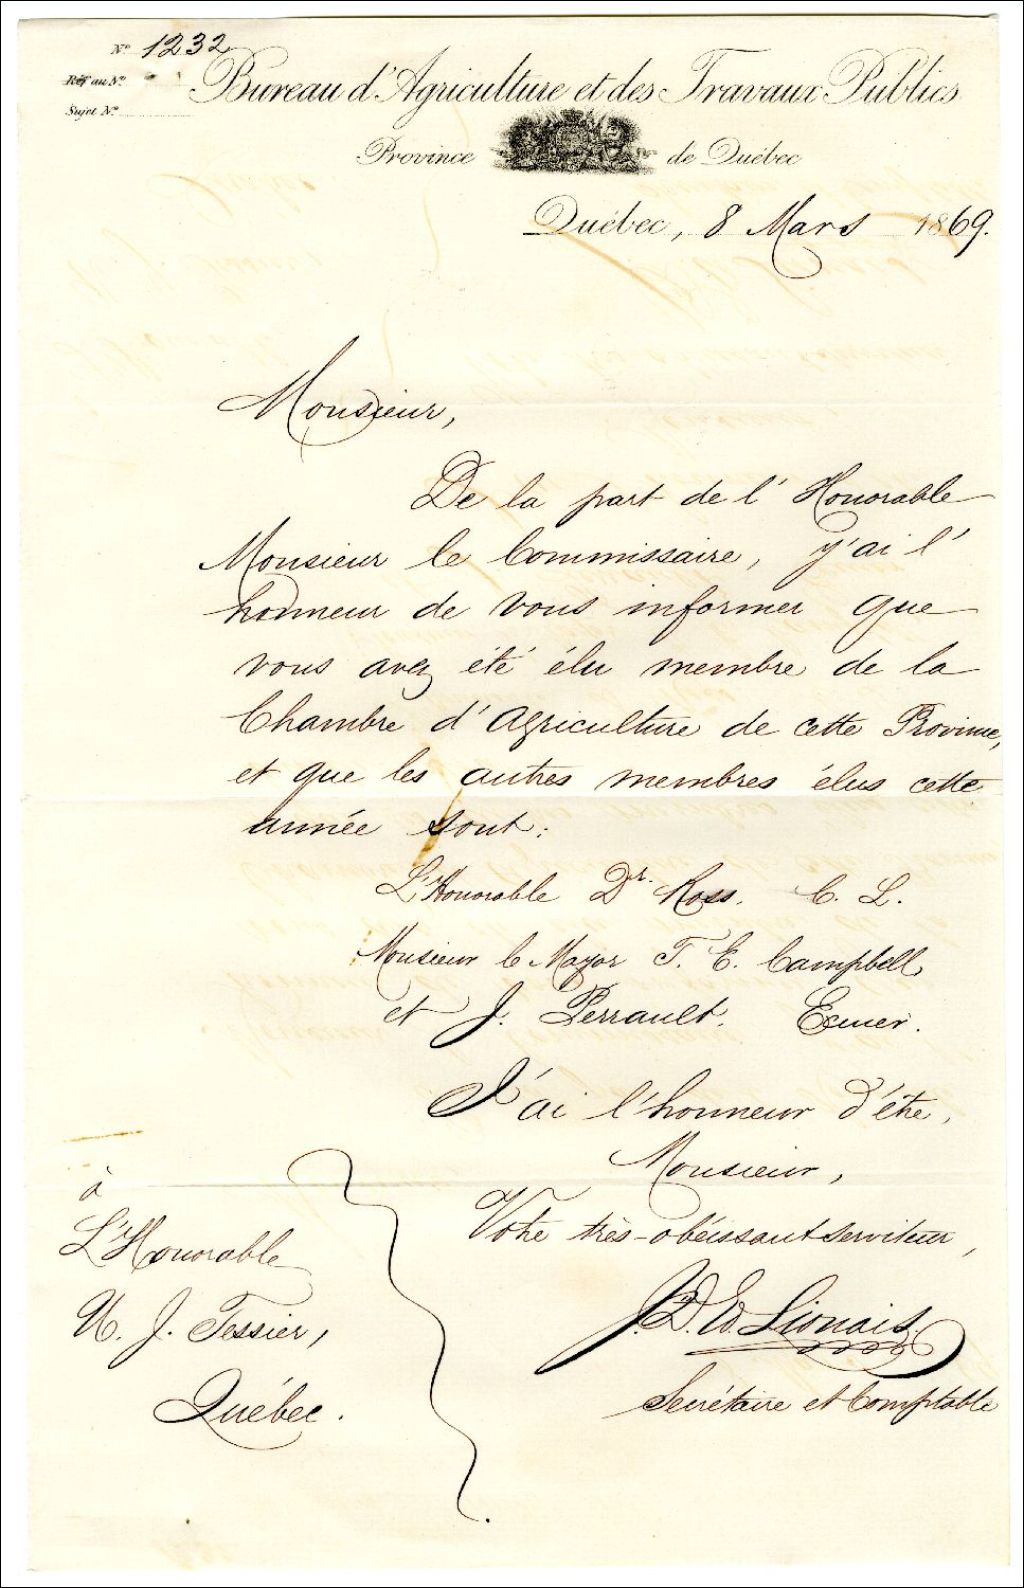 No. 1232
Réf au No.
Sujet No.
Bureau d'Agriculture et des Travaux Publics
Province de Québec
Québec, 8 Mars 1869.
Monsieur,
De la part de l'Honorable
Monsieur le Commissaire, j'ai l'
honneur de vous informer que
vous avez été élu membre de la
Chambre d'Agriculture de cette Province,
et que les autres membres élus cette
année sont:
L'Honorable Dr. Ross. C. L.
Monsieur le Mayor T. E. Campbell
et J. Perrault. Ecuier.
J'ai l'honneur d'être,
Monsieur,
Votre très-obéissant serviteur,
J. D. Ed. Lionais
Secrétaire et Comptable
à
L'Honorable
U. J. Tessier,
Québec.